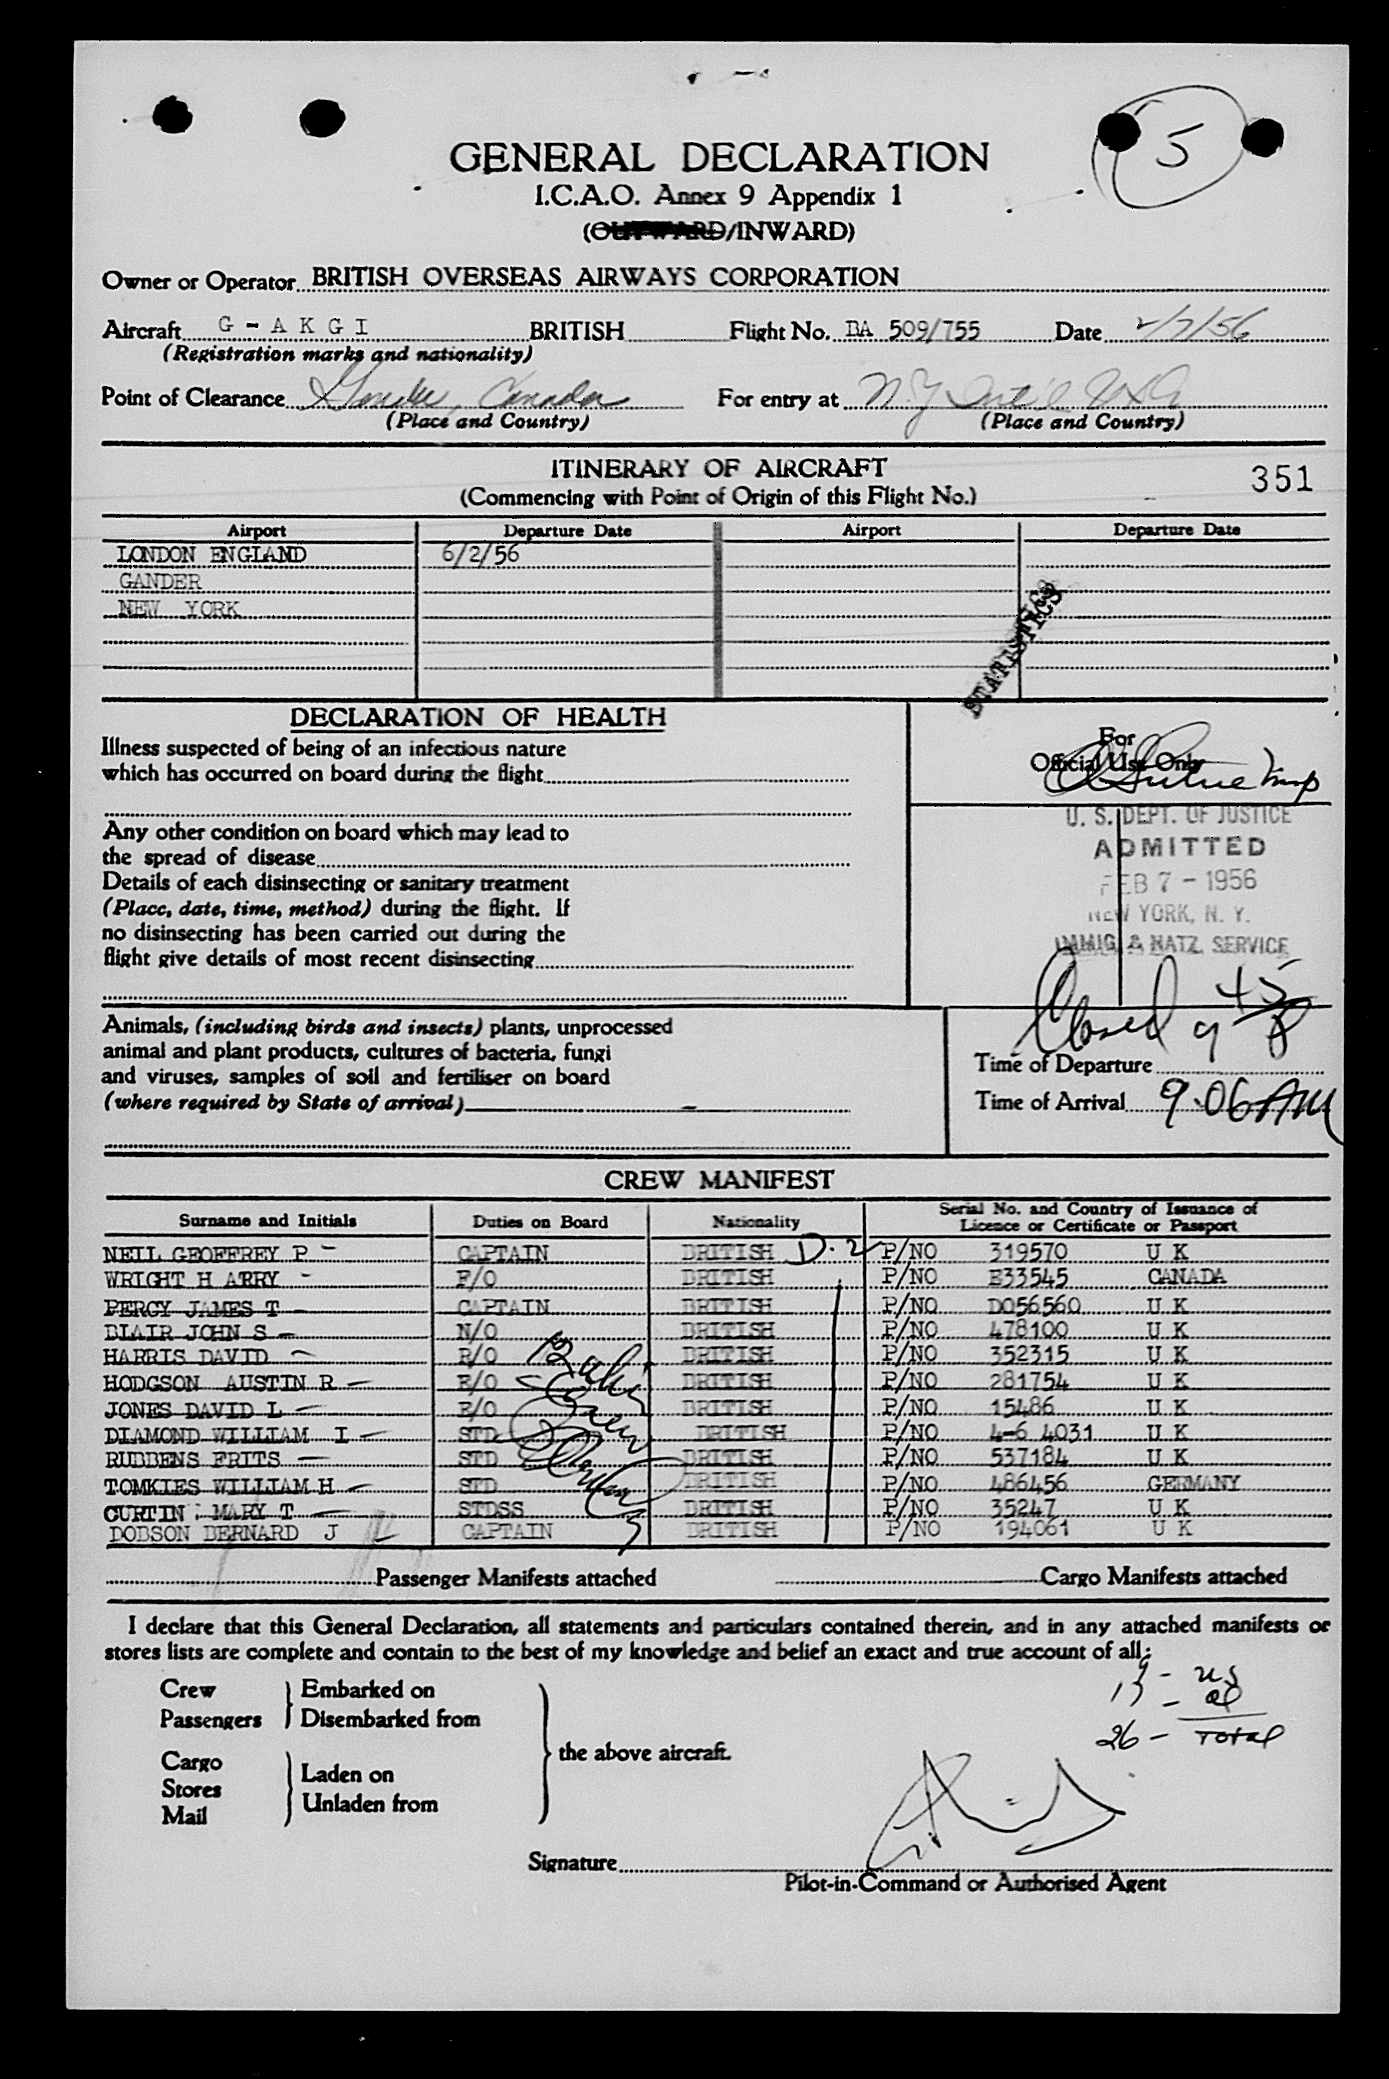 5
GENERAL DECLARATION
I.C.A.O. Annex 9 Appendix 1
(OUTWARD/INWARD)
Owner or Operator BRITISH OVERSEAS AIRWAYS CORPORATION
Aircraft G - A K G I BRITISH Flight No. BA 509/755 Date 2/7/56
(Registration marks and nationality)
Point of Clearance Gander, Canada For entry at N.Y. Int'l USA
(Place and Country) (Place and Country)
ITINERARY OF AIRCRAFT
351
(Commencing with Point of Origin of this Flight No.)
Airport Departure Date Airport Departure Date
LONDON ENGLAND 6/2/56
GANDER
NEW YORK
STATISTICS
DECLARATION OF HEALTH
Illness suspected of being of an infectious nature
which has occurred on board during the flight
For
Official Use Only
Any other condition on board which may lead to
the spread of disease
Details of each disinsecting or sanitary treatment
(Place, date, time, method) during the flight. If
no disinsecting has been carried out during the
flight give details of most recent disinsecting
U. S. DEPT. OF JUSTICE
ADMITTED
FEB 7 - 1956
NEW YORK, N. Y.
IMMIG. & NATZ. SERVICE
Closed 9 45
Animals, (including birds and insects) plants, unprocessed
animal and plant products, cultures of bacteria, fungi
and viruses, samples of soil and fertiliser on board
(where required by State of arrival)
Time of Departure
Time of Arrival 9.06 AM
CREW MANIFEST
Surname and Initials Duties on Board Nationality Serial No. and Country of Issuance of Licence or Certificate or Passport
NEIL GEOFFREY P - CAPTAIN BRITISH D.2 P/NO 319570 U K
WRIGHT HARRY - F/O BRITISH P/NO E33545 CANADA
PERCY JAMES T CAPTAIN BRITISH P/NO D056560 U K
BLAIR JOHN S - N/O BRITISH P/NO 478100 U K
HARRIS DAVID - R/O BRITISH P/NO 352315 U K
HODGSON AUSTIN R - E/O BRITISH P/NO 281754 U K
JONES DAVID L - E/O BRITISH P/NO 15486 U K
DIAMOND WILLIAM I - STD BRITISH P/NO 4-6 4031 U K
RUBBENS FRITS - STD BRITISH P/NO 537184 U K
TOMKIES WILLIAM H - STD BRITISH P/NO 486456 GERMANY
CURTIN MARY T - STDSS BRITISH P/NO 35247 U K
DOBSON BERNARD J CAPTAIN BRITISH P/NO 194061 U K
Passenger Manifests attached Cargo Manifests attached
I declare that this General Declaration, all statements and particulars contained therein, and in any attached manifests or
stores lists are complete and contain to the best of my knowledge and belief an exact and true account of all:
Crew
Passengers
Embarked on
Disembarked from
Cargo
Stores
Mail
Laden on
Unladen from
the above aircraft.
- US
- al
26 - Total
Signature
Pilot-in-Command or Authorised Agent